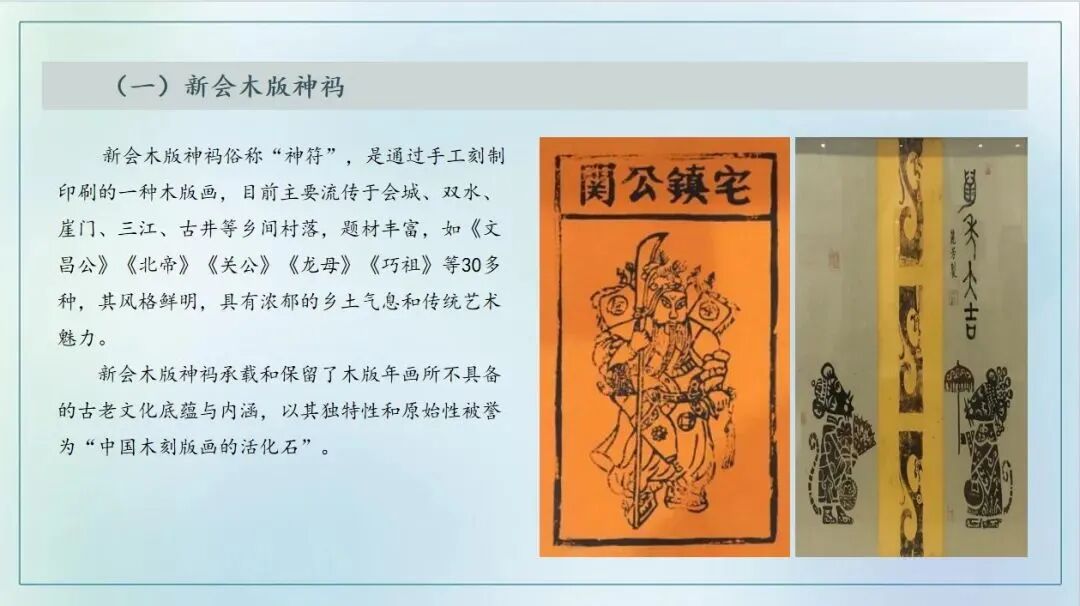 （一）新会木版神祃
新会木版神祃俗称“神符”，是通过手工刻制
印刷的一种木版画，目前主要流传于会城、双水、
崖门、三江、古井等乡间村落，题材丰富，如《文
昌公》《北帝》《关公》《龙母》《巧祖》等30多
种，其风格鲜明，具有浓郁的乡土气息和传统艺术
魅力。
新会木版神祃承载和保留了木版年画所不具备
的古老文化底蕴与内涵，以其独特性和原始性被誉
为“中国木刻版画的活化石”。
関公鎮宅
大吉